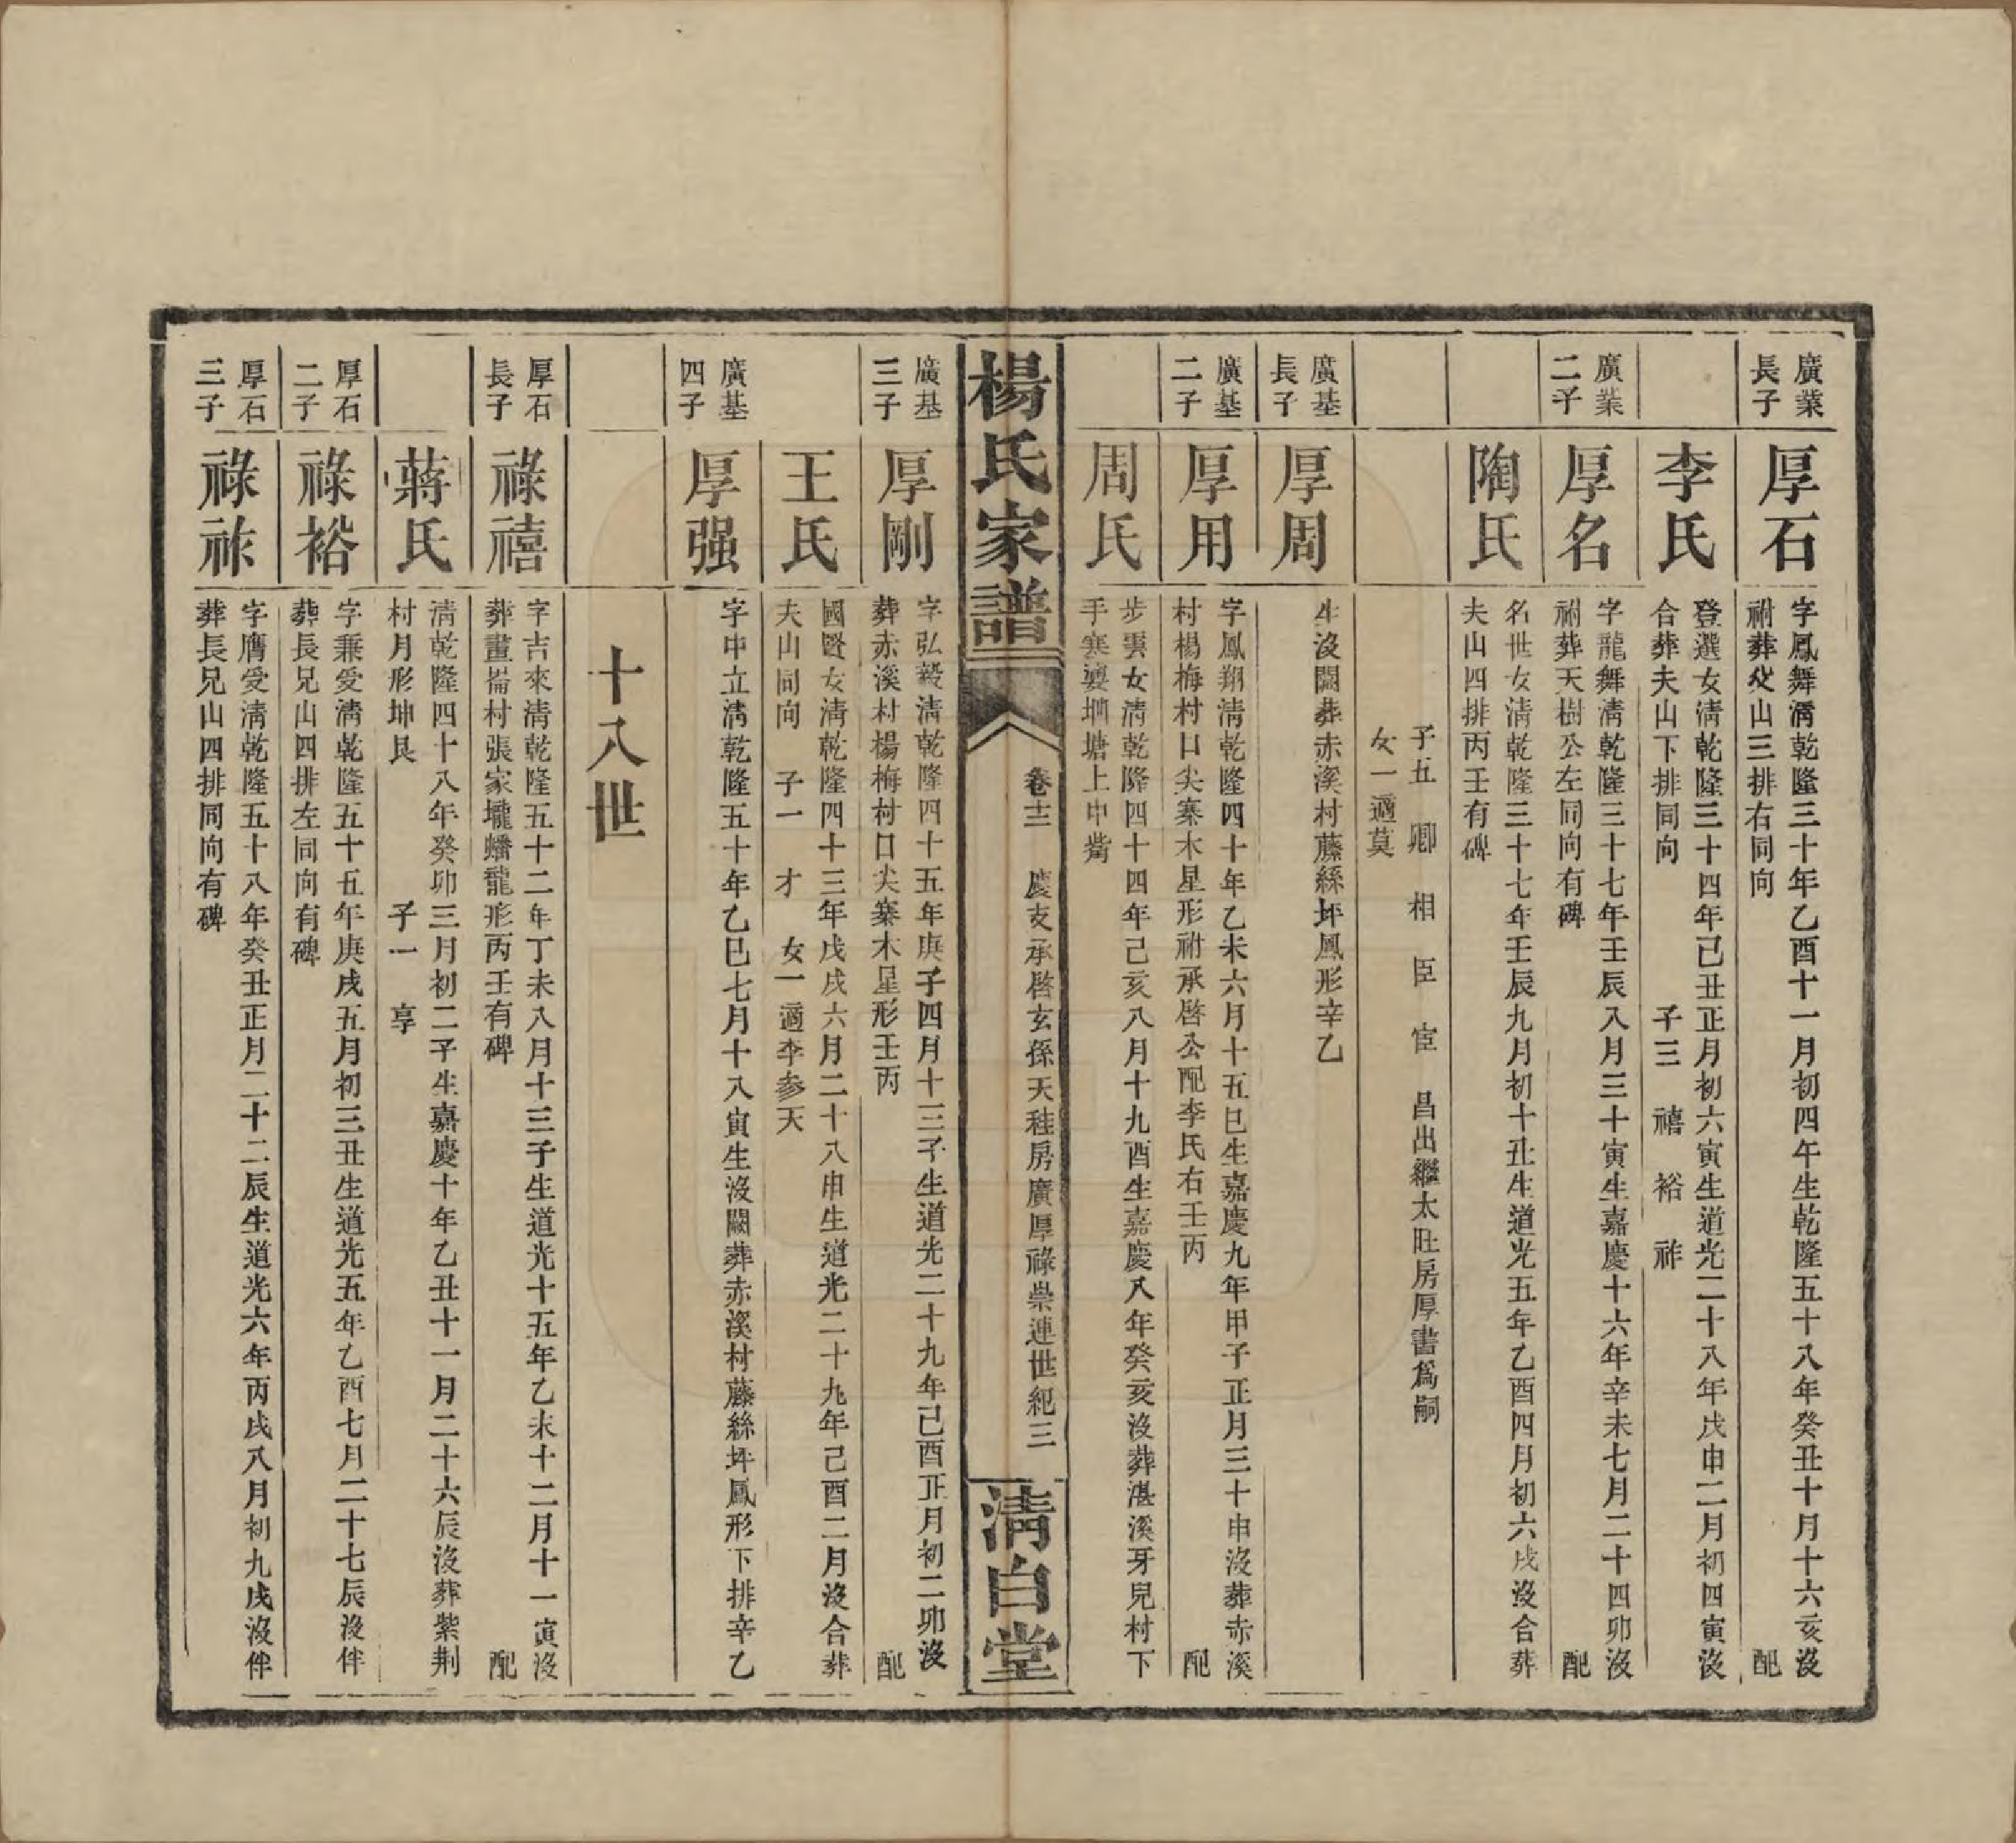 廣業長子
厚石
字鳳舞清乾隆三十年乙酉十一月初四午生乾隆五十八年癸丑十月十六亥沒
祔葬父山三排右同向 配
李氏
登選女清乾隆三十四年己丑正月初六寅生道光二十八年戊申二月初四寅沒
合葬夫山下排同向 子三 禧 裕 祚
廣業二子
厚名
字龍舞清乾隆三十七年壬辰八月三十寅生嘉慶十六年辛未七月二十四卯沒
祔葬天樹公左同向有碑 配
陶氏
名世女清乾隆三十七年壬辰九月初十丑生道光五年乙酉四月初六戌沒合葬
夫山四排丙壬有碑
子五 卿 相 臣 宦 昌出繼太旺房厚書爲嗣
女一適莫
廣基長子
厚周
生沒闕葬赤溪村藤絲坪鳳形辛乙
廣基二子
厚用
字鳳翔清乾隆四十年乙未六月十五巳生嘉慶九年甲子正月三十申沒葬赤溪
村楊梅村口尖寨木星形祔承啓公配李氏右壬丙 配
周氏
步雲女清乾隆四十四年己亥八月十九酉生嘉慶八年癸亥沒葬湛溪牙兒村下
手寨婆塘塘上申
楊氏家譜
卷十三 慶支承啓玄孫天秩房廣厚祿崇連世紀三
清白堂
廣基三子
厚剛
字弘毅清乾隆四十五年庚子四月十三子生道光二十九年己酉正月初二卯沒
葬赤溪村楊梅村口尖寨木星形壬丙 配
王氏
國賢女清乾隆四十三年戊戌六月二十八申生道光二十九年己酉二月沒合葬
夫山同向 子一 才 女一適李參天
廣基四子
厚强
字中立清乾隆五十年乙巳七月十八寅生沒闕葬赤溪村藤絲坪鳳形下排辛乙
十八世
厚石長子
祿禧
字吉來清乾隆五十二年丁未八月十三子生道光十五年乙未十二月十一寅沒
葬畫崙村張家壠蟠龍形丙壬有碑 配
蔣氏
清乾隆四十八年癸卯三月初二子生嘉慶十年乙丑十一月二十六辰沒葬紫荆
村月形坤艮 子一 享
厚石二子
祿裕
字秉爰清乾隆五十五年庚戌五月初三丑生道光五年乙酉七月二十七辰沒伴
葬長兄山四排左同向有碑
厚石三子
祿祚
字膺受清乾隆五十八年癸丑正月二十二辰生道光六年丙戌八月初九戌沒伴
葬長兄山四排同向有碑